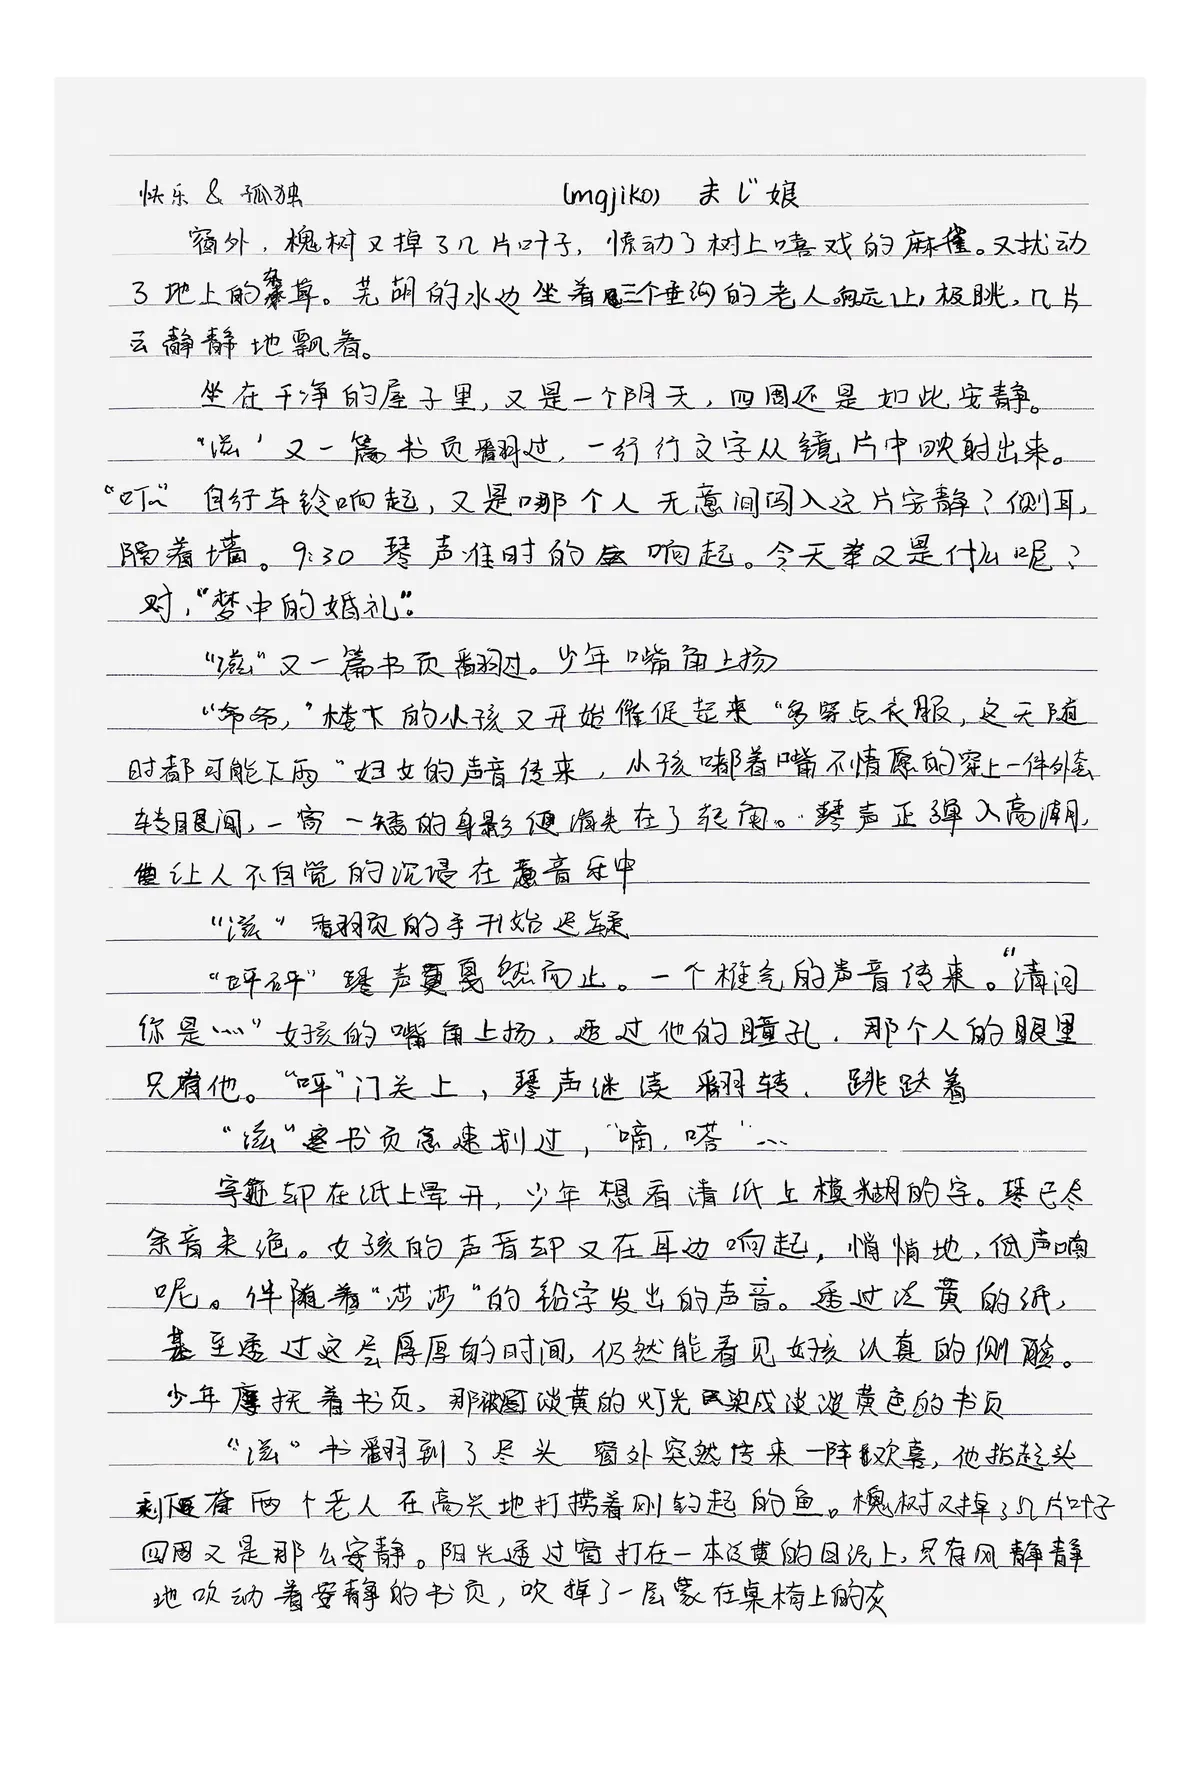 快乐 & 孤独 (majiko) まじ娘
窗外，槐树又掉了几片叶子，惊动了树上嘻戏的麻雀。又扰动
了地上的杂草。芜湖的水边坐着三个垂钓的老人向远让，极眺，几片
云静静地飘着。
坐在干净的屋子里，又是一个阴天，四周还是如此安静。
"滋'又一篇书页翻过，一行行文字从镜片中映射出来。
"叮"自行车铃响起，又是哪个人无意间闯入这片安静？侧耳，
隔着墙。9:30 琴声准时的响起。今天奏又是什么呢？
对，"梦中的婚礼"。
"滋"又一篇书页翻过。少年嘴角上扬
"命命，"楼下的小孩又开始催促起来"多穿点衣服，这天随
时都可能下雨"妇女的声音传来，小孩嘟着嘴不情愿的穿上一件外套
转眼间，一高一矮的身影便消失在了转角。琴声正弹入高潮，
让人不自觉的沉浸在音乐中
"滋"翻页的手开始迟疑
"砰砰"琴声戛然而止。一个稚气的声音传来。"请问
你是……"女孩的嘴角上扬，透过他的瞳孔，那个人的眼里
只有他。"呯"门关上，琴声继续翻转，跳跃着
"滋"书页急速划过，"嘀，嗒"…
字迹却在纸上晕开，少年想看清纸上模糊的字。琴已尽
余音未绝。女孩的声音却又在耳边响起，悄悄地，低声喃
呢。伴随着"莎莎"的铅字发出的声音。透过泛黄的纸，
甚至透过这层厚厚的时间，仍然能看见女孩认真的侧脸。
少年摩抚着书页，那被淡黄的灯光染成淡淡黄色的书页
"滋"书翻到了尽头 窗外突然传来一阵欢喜，他抬起头
剩下两个老人在高兴地打捞着刚钓起的鱼。槐树又掉了几片叶子
四周又是那么安静。阳光透过窗打在一本泛黄的日记上，只有风静静
地吹动着安静的书页，吹掉了一层蒙在桌椅上的灰